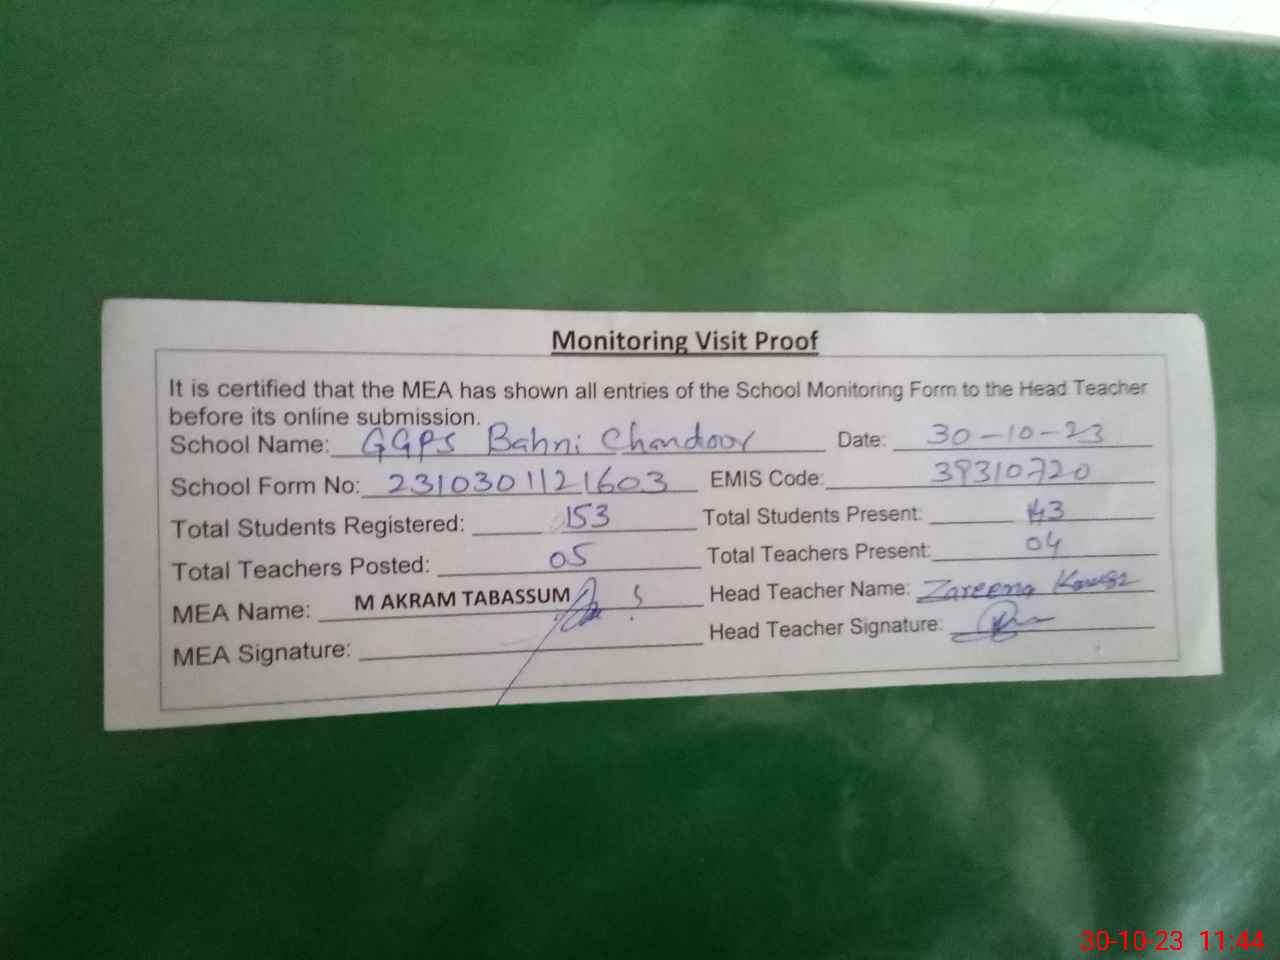 Monitoring Visit Proof
It is certified that the MEA has shown all entries of the School Monitoring Form to the Head Teacher
before its online submission.
School Name: GGPS Bahni Chandoor Date: 30-10-23
School Form No: 2310301121603 EMIS Code: 39310720
Total Students Registered: 153 Total Students Present: 143
Total Teachers Posted: 05 Total Teachers Present: 04
MEA Name: M AKRAM TABASSUM Head Teacher Name: Zareena
MEA Signature: Head Teacher Signature:
30-10-23 11:44